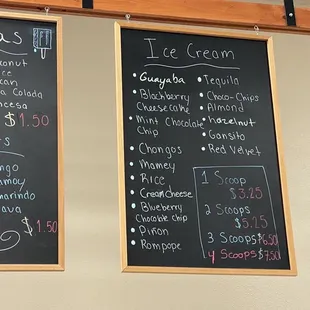 as
conut
ce
an
a Colada
cesa
$1.50
s
ngo
moy
marindo
ava
$1.50
Ice Cream
• Guayaba
• Blackberry
Cheesecake
• Mint Chocolate
Chip
• Chongos
• Mamey
• Rice
• Creamcheese
• Blueberry
Chocolate chip
• Piñon
• Rompope
• Tequila
• Choco-Chips
• Almond
• hazelnut
• Gansito
• Red Velvet
1 Scoop
$3.25
2 Scoops
$5.25
3 Scoops $6.50
4 Scoops $7.50